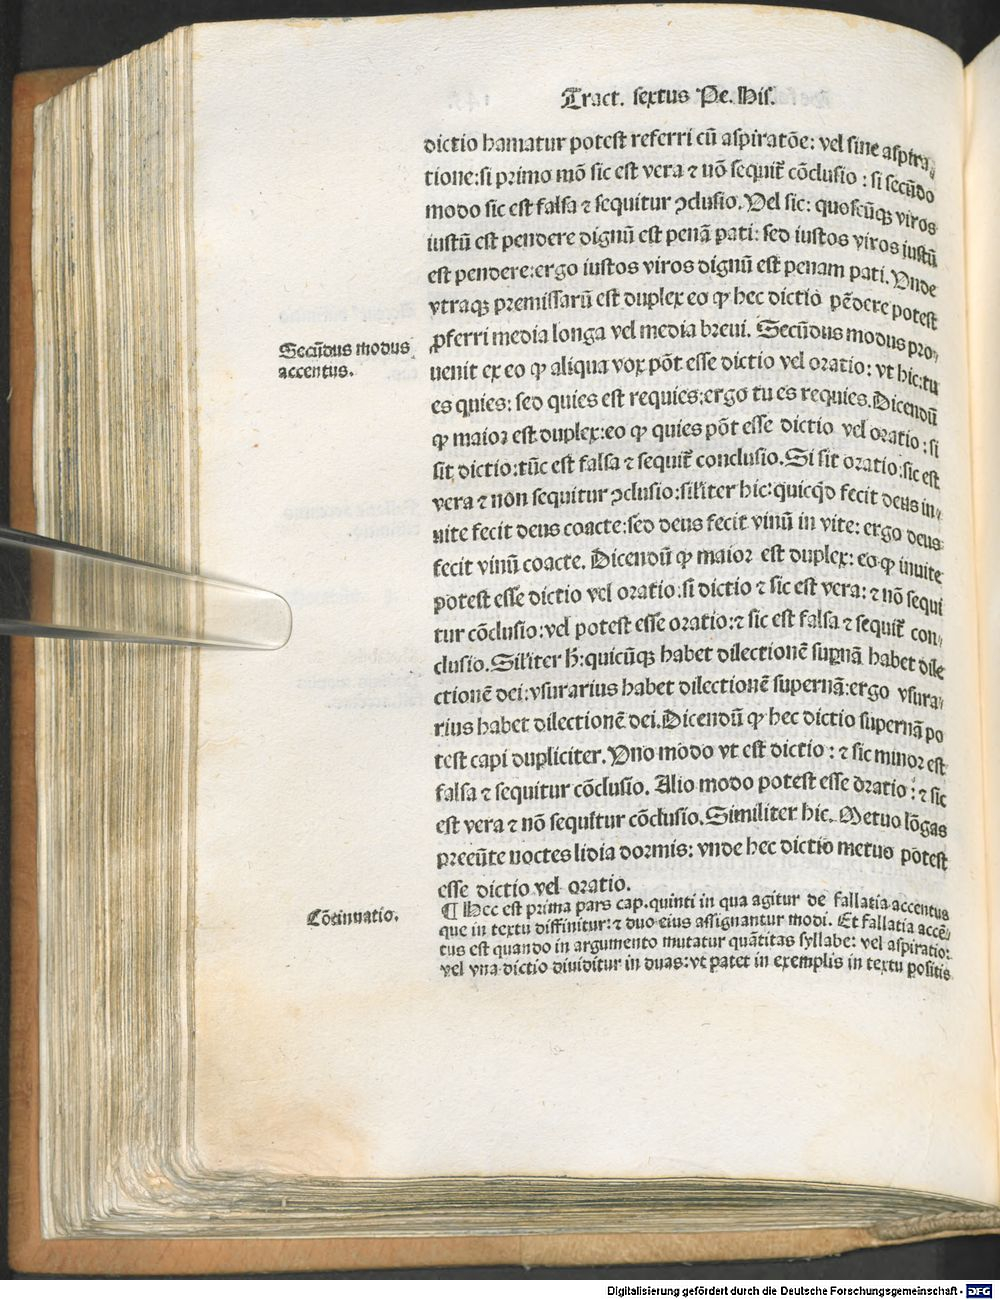 Tract. sextus Pe. His.
dictio hamatur potest referri cū aspiratōe: vel sine aspira⸗
tione: si primo mō sic est vera ⁊ nō sequit̄ cōclusio: si secūdo
modo sic est falsa ⁊ sequitur ꝯclusio. Vel sic: quoscūqꝫ viros
iustū est pendere dignū est penā pati: sed iustos viros iustū
est pendere: ergo iustos viros dignū est penam pati. Vnde
vtraqꝫ premissarū est duplex eo ꝙ hec dictio pēdere potest
ꝓferri media longa vel media breui. Secūdus modus pro⸗
uenit ex eo ꝙ aliqua vox pōt esse dictio vel oratio: vt hic: tu
es quies: sed quies est requies: ergo tu es requies. Dicendū
ꝙ maior est duplex: eo ꝙ quies pōt esse dictio vel oratio: si
sit dictio: tūc est falsa ⁊ sequit̄ conclusio. Si sit oratio: sic est
vera ⁊ non sequitur ꝯclusio: silīter hic: quicqd̄ fecit deus in⸗
uite fecit deus coacte: sed deus fecit vinū in vite: ergo deus
fecit vinū coacte. Dicendū ꝙ maior est duplex: eo ꝙ inuite
potest esse dictio vel oratio: si dictio ⁊ sic est vera: ⁊ nō sequi
tur cōclusio: vel potest esse oratio: ⁊ sic est falsa ⁊ sequit̄ con⸗
clusio. Silīter h̄: quicūqꝫ habet dilectionē suꝑnā habet dile
ctionē dei: vsurarius habet dilectionē supernā: ergo vsura⸗
rius habet dilectionē dei. Dicendū ꝙ hec dictio supernā po
test capi dupliciter. Vno modo vt est dictio: ⁊ sic minor est
falsa ⁊ sequitur cōclusio. Alio modo potest esse oratio: ⁊ sic
est vera ⁊ nō sequitur cōclusio. Similiter hic. Metuo lōgas
pereūte noctes lidia dormis: vnde hec dictio metuo pōtest
esse dictio vel oratio.
¶ Hec est prima pars cap. quinti in qua agitur de fallatia accentus
que in textu diffinitur: ⁊ duo eius assignantur modi. Et fallatia accē⸗
tus est quando in argumento mutatur quātitas syllabe: vel aspiratio:
vel vna dictio diuiditur in duas: vt patet in exemplis in textu positis
Secūdus modus
accentus.
Cōtinuatio.
Digitalisierung gefördert durch die Deutsche Forschungsgemeinschaft - DFG